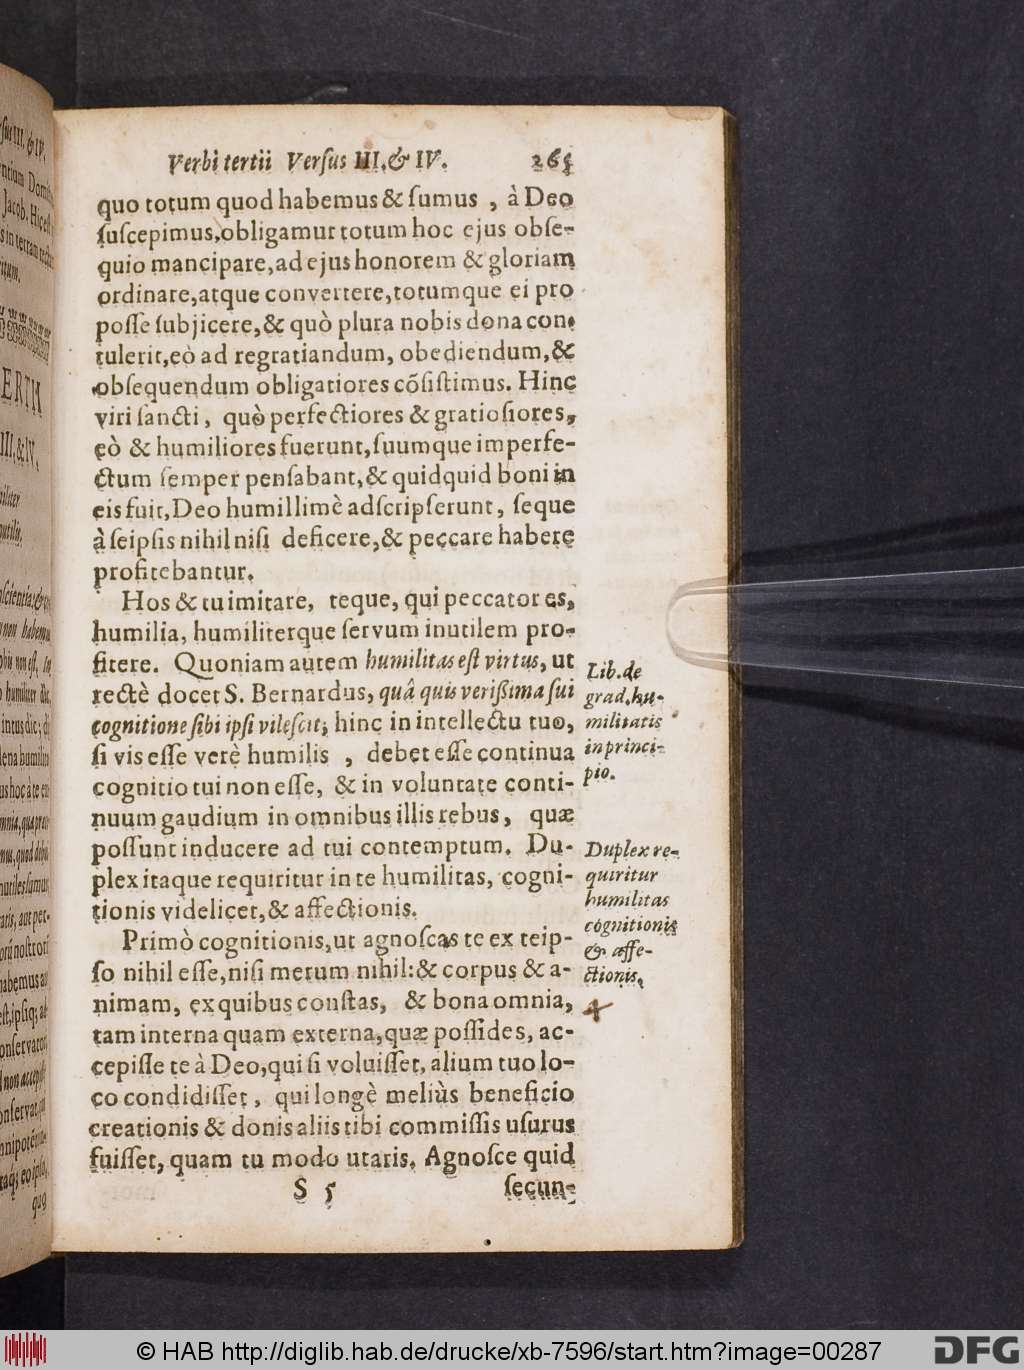 Verbi tertii Verſus III. & IV. 265
quo totum quod habemus & ſumus, à Deo
ſuſcepimus, obligamur totum hoc ejus obſe-
quio mancipare, ad ejus honorem & gloriam
ordinare, atque convertere, totumque ei pro
poſſe ſubjicere, & quò plura nobis dona con-
tulerit, eò ad regratiandum, obediendum, &
obſequendum obligatiores cõſiſtimus. Hinc
viri ſancti, quò perfectiores & gratioſiores,
eò & humiliores fuerunt, ſuumque imperfe-
ctum ſemper penſabant, & quidquid boni in
eis fuit, Deo humillimè adſcripſerunt, ſeque
à ſeipſis nihil niſi deficere, & peccare habere
profitebantur.
Hos & tu imitare, teque, qui peccator es,
humilia, humiliterque ſervum inutilem pro-
fitere. Quoniam autem humilitas eſt virtus, ut
rectè docet S. Bernardus, quâ quis verißima ſui
cognitione ſibi ipſi vileſcit; hinc in intellectu tuo,
ſi vis eſſe verè humilis, debet eſſe continua
cognitio tui non eſſe, & in voluntate conti-
nuum gaudium in omnibus illis rebus, quæ
poſſunt inducere ad tui contemptum. Du-
plex itaque requiritur in te humilitas, cogni-
tionis videlicet, & affectionis.
Primò cognitionis, ut agnoſcas te ex teip-
ſo nihil eſſe, niſi merum nihil: & corpus & a-
nimam, ex quibus conſtas, & bona omnia,
tam interna quam externa, quæ poſſides, ac-
cepiſſe te à Deo, qui ſi voluiſſet, alium tuo lo-
co condidiſſet, qui longè meliùs beneficio
creationis & donis aliis tibi commiſſis uſurus
fuiſſet, quam tu modo utaris. Agnoſce quid
S 5 ſecun-
Lib. de
grad. hu-
militatis
in princi-
pio.
Duplex re-
quiritur
humilitas
cognitionis
& affe-
ctionis.
© HAB http://diglib.hab.de/drucke/xb-7596/start.htm?image=00287
DFG